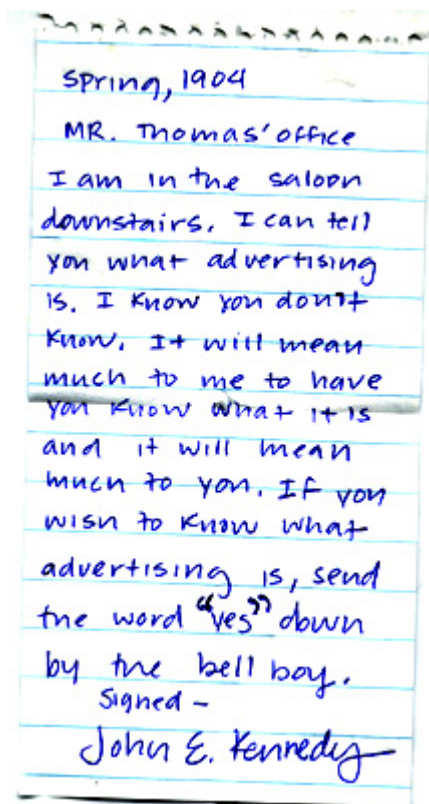 Spring, 1904
MR. Thomas' office
I am in the saloon
downstairs. I can tell
you what advertising
is. I know you don't
know. It will mean
much to me to have
you know what it is
and it will mean
much to you. If you
wish to know what
advertising is, send
the word "yes" down
by the bell boy.
Signed -
John E. Kennedy